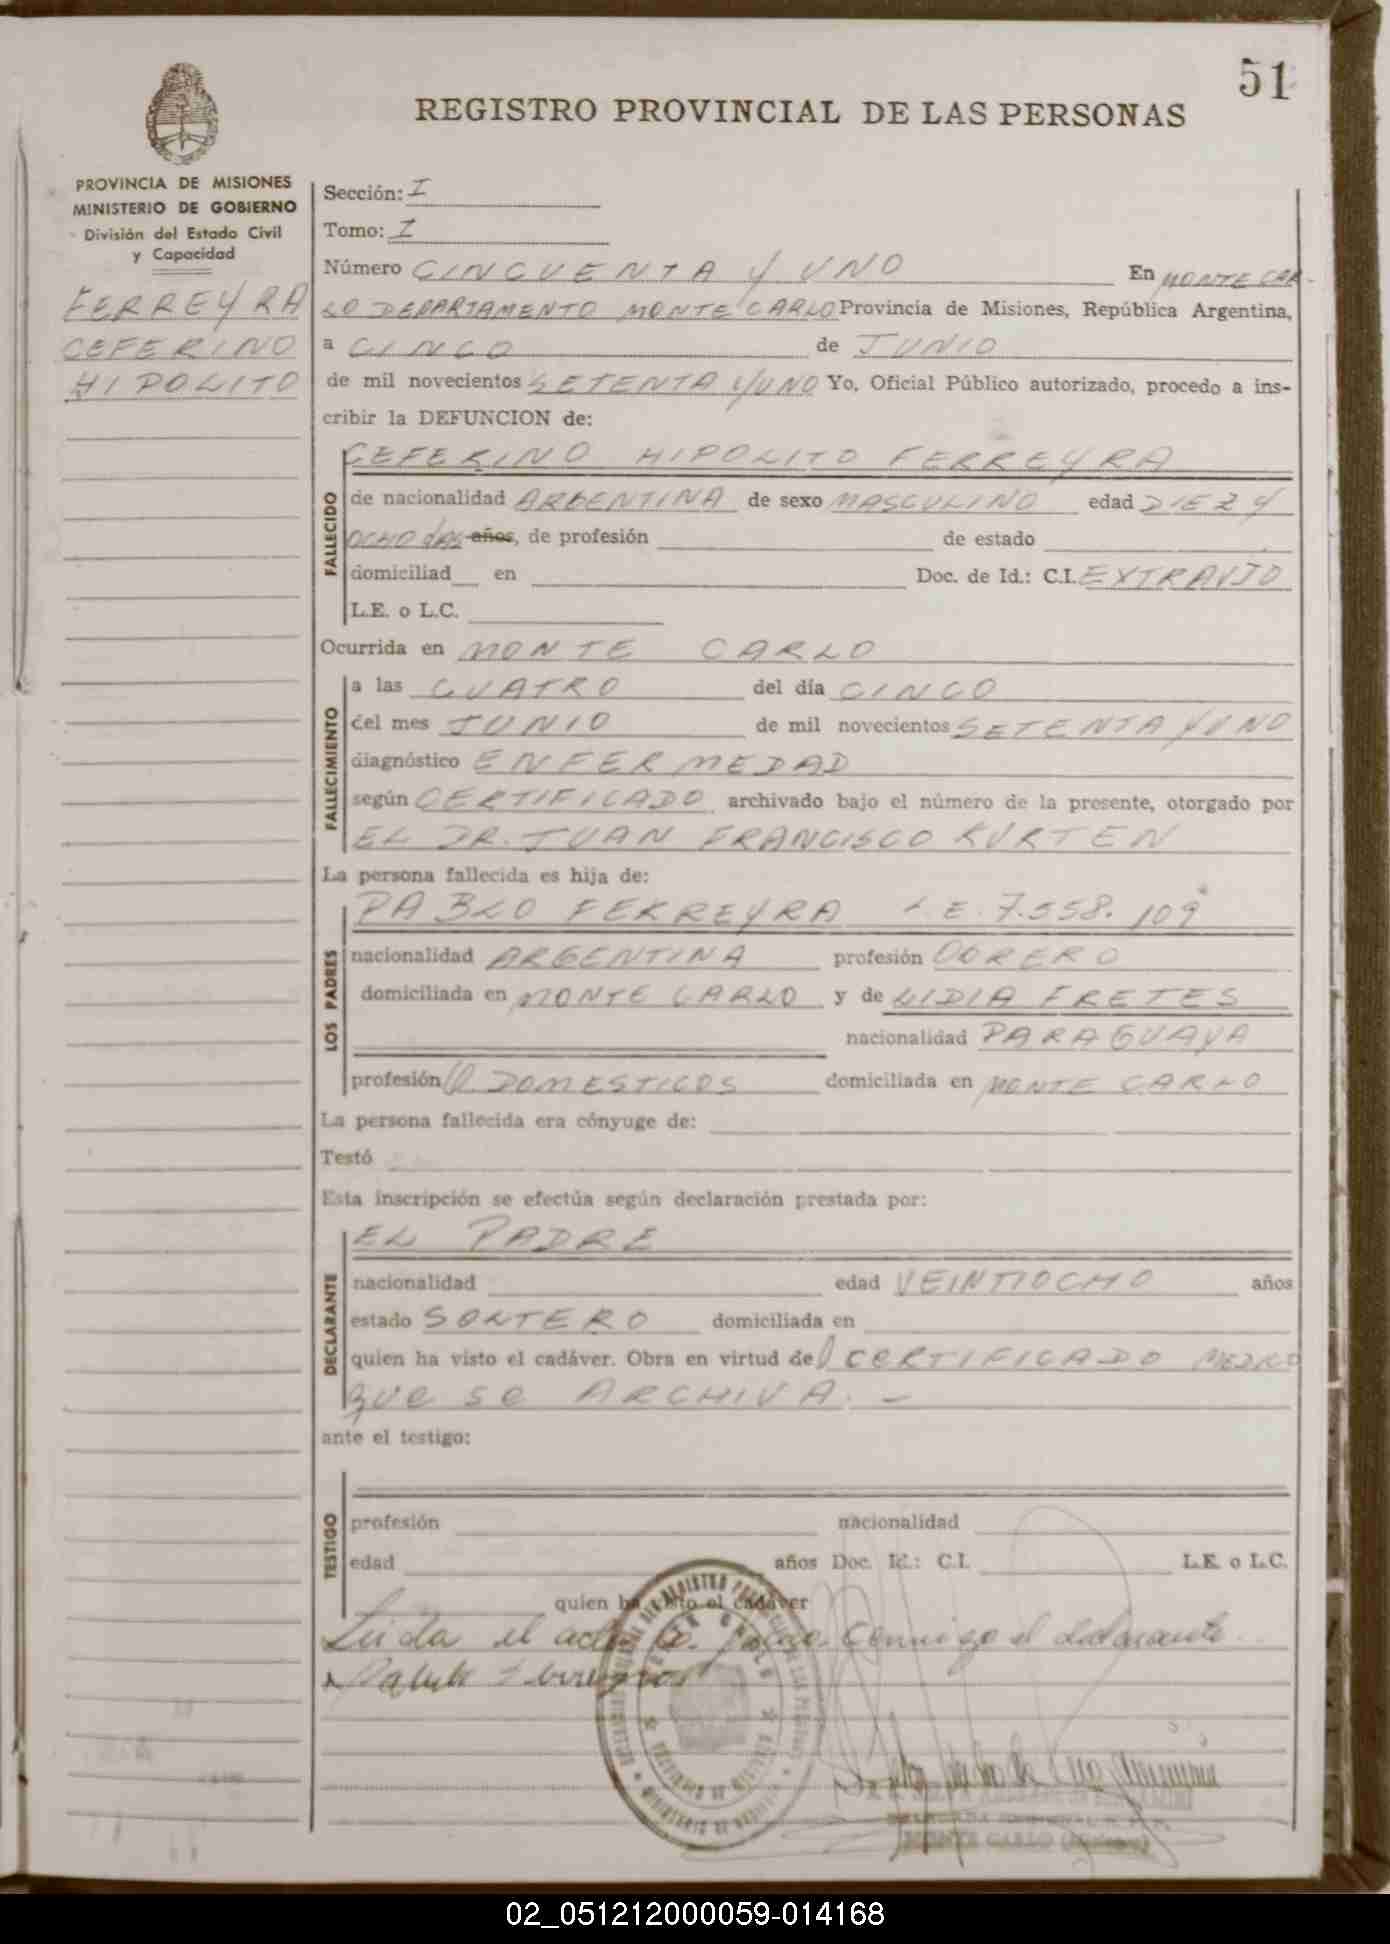 51
REGISTRO PROVINCIAL DE LAS PERSONAS
PROVINCIA DE MISIONES
MINISTERIO DE GOBIERNO
División del Estado Civil
y Capacidad
FERREYRA
CEFERINO
HIPOLITO
Sección: I
Tomo: I
Número CINCUENTA Y UNO En MONTE CAR-
LO DEPARTAMENTO MONTE CARLO Provincia de Misiones, República Argentina,
a CINCO de JUNIO
de mil novecientos SETENTA Y UNO Yo, Oficial Público autorizado, procedo a ins-
cribir la DEFUNCION de:
CEFERINO HIPOLITO FERREYRA
FALLECIDO
de nacionalidad ARGENTINA de sexo MASCULINO edad DIEZ Y
OCHO días años, de profesión de estado
domiciliad en Doc. de Id.: C.I. EXTRAVIO
L.E. o L.C.
Ocurrida en MONTE CARLO
FALLECIMIENTO
a las CUATRO del día CINCO
del mes JUNIO de mil novecientos SETENTA Y UNO
diagnóstico ENFERMEDAD
según CERTIFICADO archivado bajo el número de la presente, otorgado por
EL DR. JUAN FRANCISCO KURTEN
La persona fallecida es hija de:
LOS PADRES
PABLO FERREYRA L.E. 7.558.109
nacionalidad ARGENTINA profesión OBRERO
domiciliada en MONTE CARLO y de LIDIA FRETES
nacionalidad PARAGUAYA
profesión Q. DOMESTICOS domiciliada en MONTE CARLO
La persona fallecida era cónyuge de:
Testó
Esta inscripción se efectúa según declaración prestada por:
DECLARANTE
EL PADRE
nacionalidad edad VEINTIOCHO años
estado SOLTERO domiciliada en
quien ha visto el cadáver. Obra en virtud del CERTIFICADO MEDICO
QUE SE ARCHIVA. -
ante el testigo:
TESTIGO
profesión nacionalidad
edad años Doc. Id.: C.I. L.E. o L.C.
quien ha visto el cadáver
Leida el acta la firma conmigo el declarante
MONTE CARLO
02_051212000059-014168